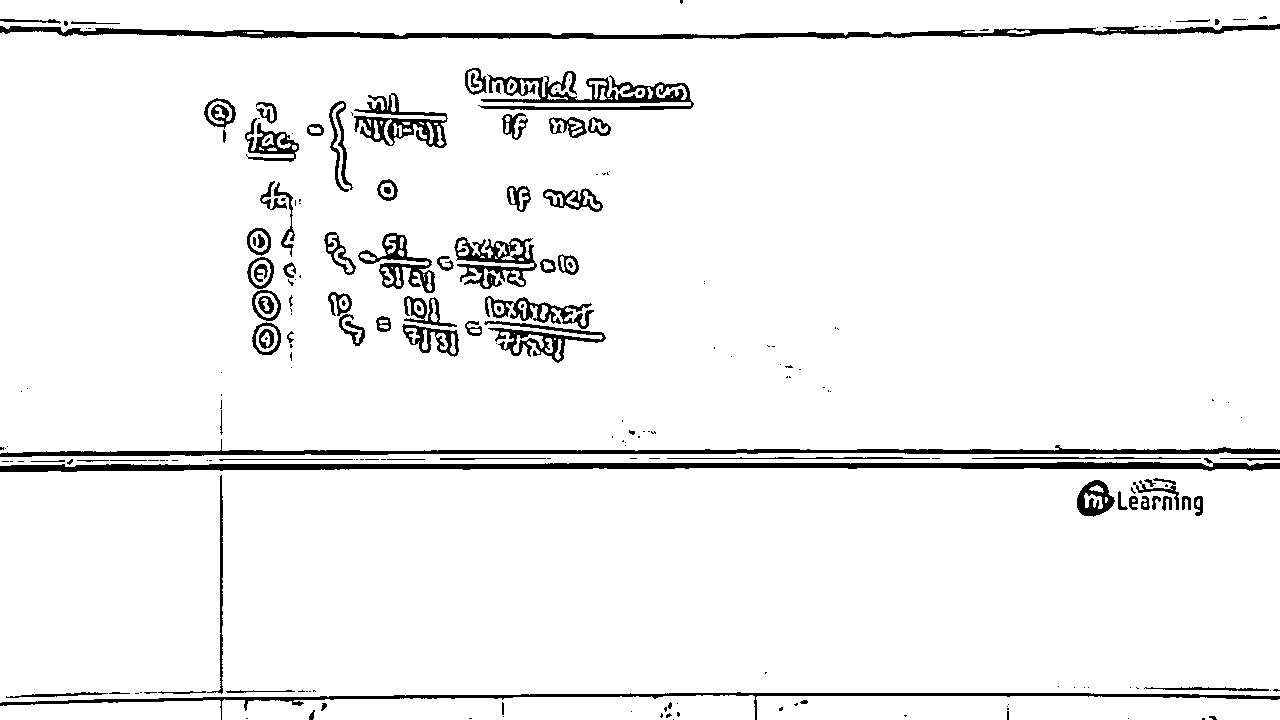 Binomial Theorem
② n = { n! / r!(n-r)! if n≥r
fac.
0 if n<r
fa
① 5C3 = 5! / 3! 2! = 5x4x3! / 3! x 2 = 10
②
③ 10C7 = 10! / 7! 3! = 10x9x8x7! / 7! x 3!
④
m Learning